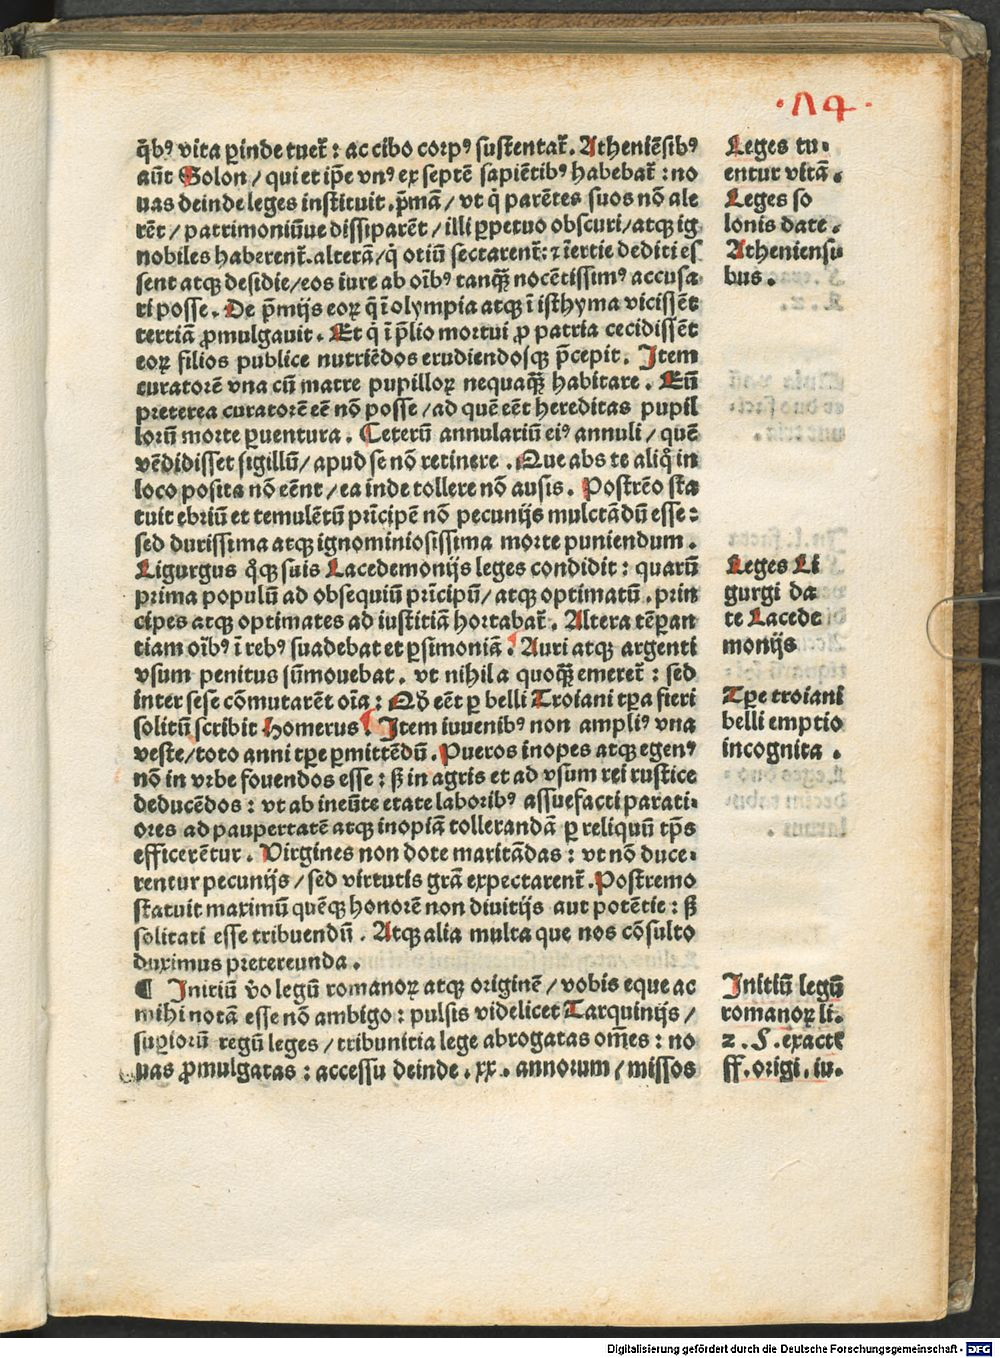 ·Λ4·
q̄bꝰ vita ꝑinde tuet᷑ : ac cibo corpꝰ sustentat᷑. Atheniēsibꝰ
aūt Solon / qui et ip̄e vnꝰ ex septē sapiētibꝰ habebat᷑ : no
uas deinde leges instituit . p̄mā / vt q̇ parētes suos nō ale
rēt / patrimoniūue dissiparēt / illi ꝑpetuo obscuri / atqꝫ ig
nobiles haberent᷑. alterā / q̇ otiū sectarent᷑ : ⁊ īertie dediti es
sent atqꝫ desidie / eos iure ab oībꝰ tanqꝫ̄ nocētissimꝰ accusa
ri posse . De p̄mijs eoꝝ q̇ ī olympia atqꝫ ī isthyma vicissēt
tertiā ꝓmulgauit . Et q̇ ī p̄lio mortui ꝓ patria cecidissēt
eoꝝ filios publice nutriēdos erudiendosqꝫ p̄cepit . Item
curatorē vna cū matre pupilloꝝ nequaqꝫ̄ habitare . Eū
preterea curatorē eē nō posse / ad quē eēt hereditas pupil
lorū morte ꝑuentura . Ceterū annulariū eiꝰ annuli / quē
vēdidisset sigillū / apud se nō retinere . Que abs te aliq̇ in
loco posita nō eēnt / ea inde tollere nō ausis . Postrēo sta
tuit ebriū et temulētū prīcipē nō pecunijs mulctādū esse :
sed durissima atqꝫ ignominiosissima morte puniendum .
Ligurgus q̊qꝫ suis Lacedemonijs leges condidit : quarū
prima populū ad obsequiū prīcipū / atqꝫ optimatū . prin
cipes atqꝫ optimates ad iustitiā hortabat᷑ . Altera tēꝑan
tiam oībꝰ ī rebꝰ suadebat et ꝑsimoniā . Auri atqꝫ argenti
vsum penitus sūmouebat . vt nihil a quoqꝫ̄ emeret᷑ : sed
inter sese cōmutarēt oīa : Qd̄ eēt ꝑ belli Troiani tꝑa fieri
solitū scribit Homerus . Item iuuenibꝰ non ampliꝰ vna
veste / toto anni tꝑe ꝑmittēdū . Pueros inopes atqꝫ egenꝰ
nō in vrbe fouendos esse : sꝫ in agris et ad vsum rei rustice
deducēdos : vt ab ineūte etate laboribꝰ assuefacti parati-
ores ad paupertatē atqꝫ inopiā tollerandā ꝑ reliquū tp̄s
efficerētur . Virgines non dote maritādas : vt nō duce-
rentur pecunijs / sed virtutis grā expectarent᷑ . Postremo
statuit maximū quēqꝫ honorē non diuitijs aut potētie : sꝫ
solitati esse tribuendū . Atqꝫ alia multa que nos cōsulto
duximus pretereunda .
¶ Initiū v̊o legū romanoꝝ atqꝫ originē / vobis eque ac
mihi notā esse nō ambigo : pulsis videlicet Tarquinijs /
suꝑiorū regū leges / tribunitia lege abrogatas om̄es : no
uas ꝓmulgatas : accessu deinde . xx . annorum / missos
Leges tu-
entur vitā .
Leges so
lonis date .
Atheniensi
bus .
Leges Li
gurgi da
te Lacede
monijs
Tꝑe troiani
belli emptio
incognita .
Initiū legū
romanoꝝ li.
2 . §. exacte
ff. origi. iu.
Digitalisierung gefördert durch die Deutsche Forschungsgemeinschaft - DFG